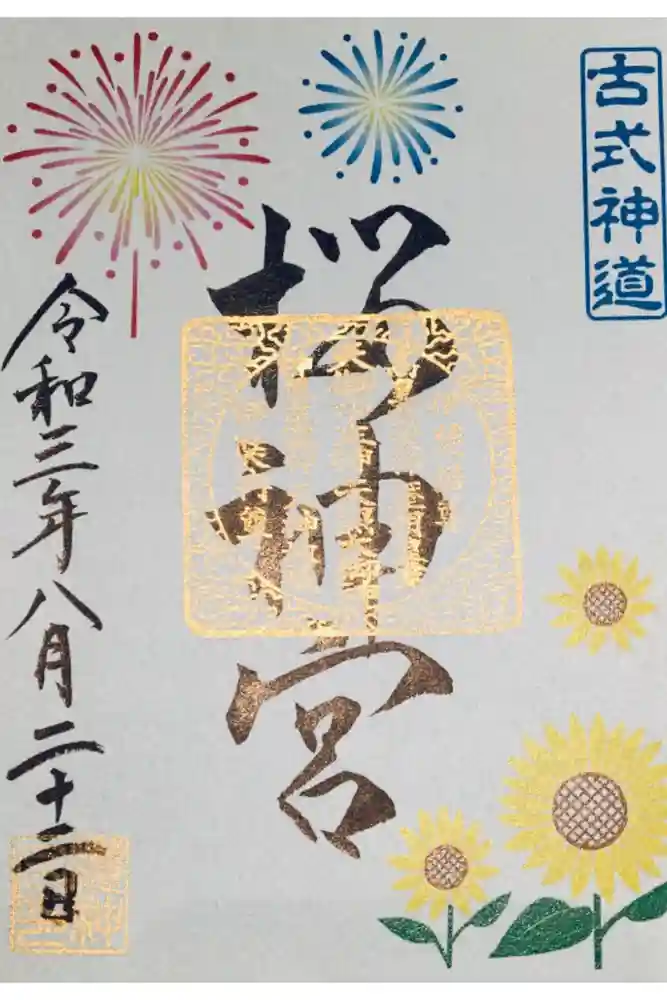 古式神道
桜神宮
令和三年八月二十二日